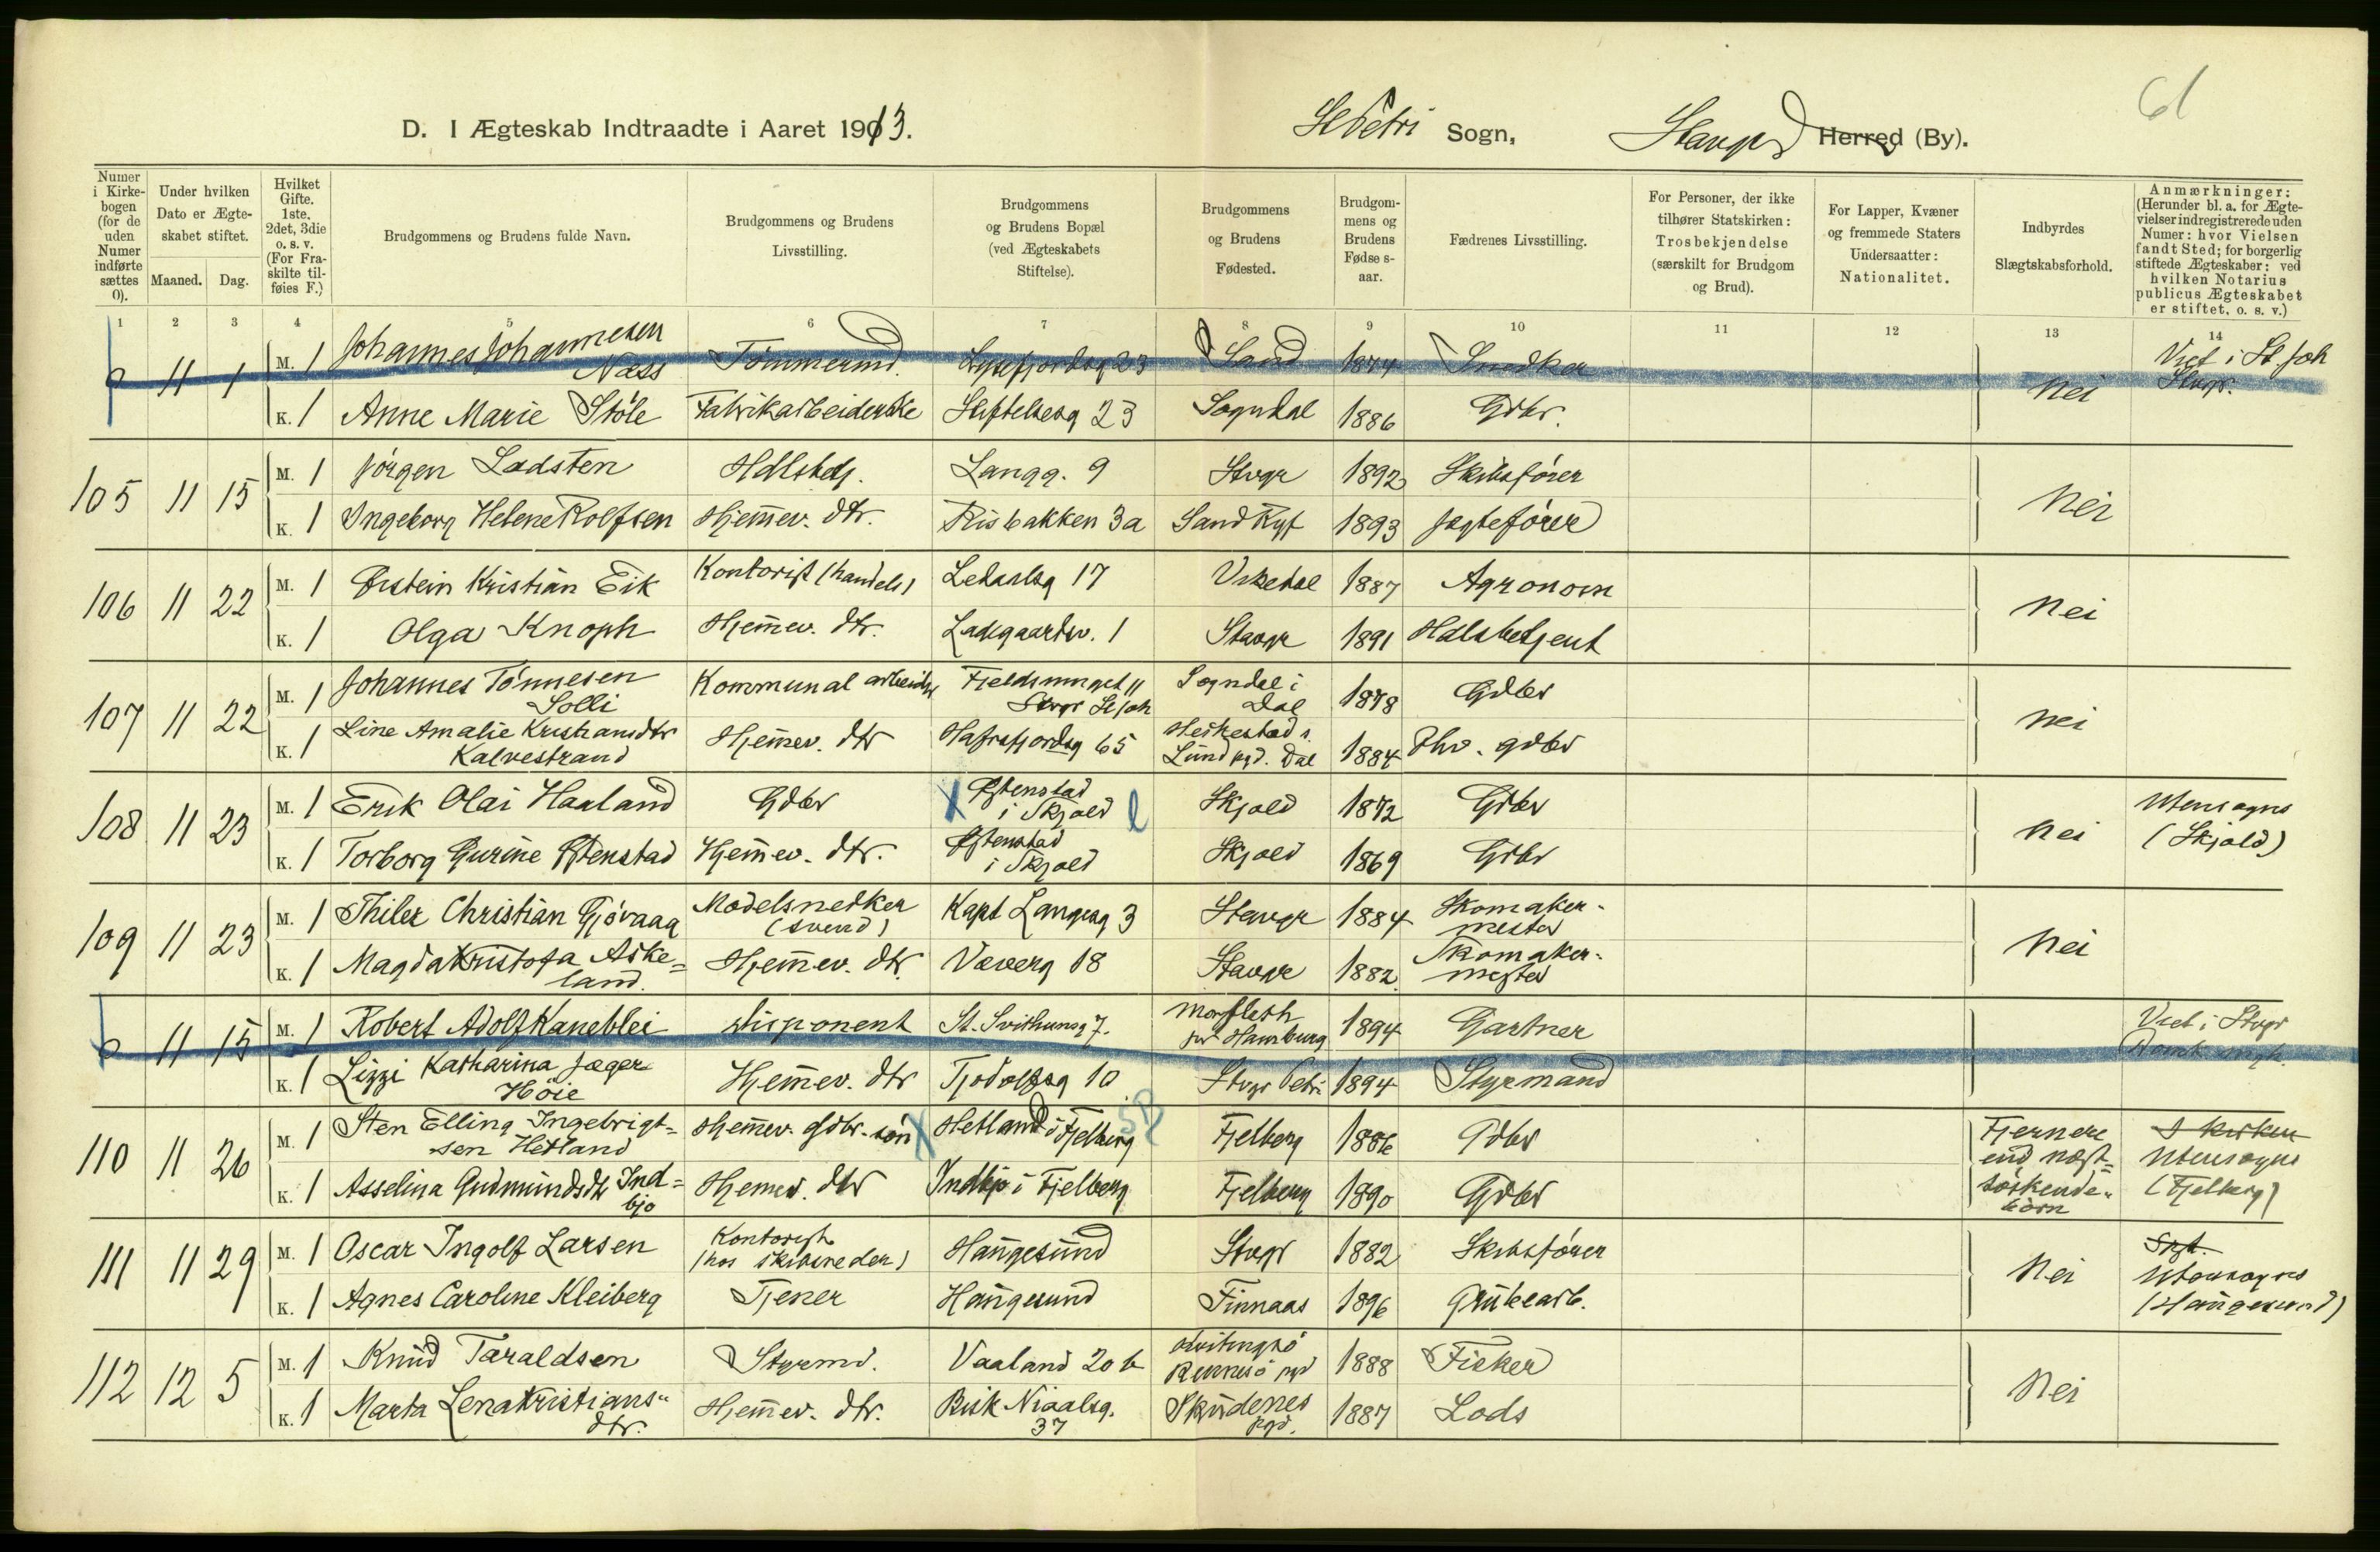 61
D. I Ægteskab Indtraadte i Aaret 1913. St Petri Sogn, Stavgr Herred (By).
Numer i Kirkebogen (for de uden Numer indførte sættes 0).
Under hvilken Dato er Ægteskabet stiftet.
Maaned. Dag.
Hvilket Gifte. 1ste, 2det, 3die o. s. v. (For Fraskilte tilføies F.)
Brudgommens og Brudens fulde Navn.
Brudgommens og Brudens Livsstilling.
Brudgommens og Brudens Bopæl (ved Ægteskabets Stiftelse).
Brudgommens og Brudens Fødested.
Brudgommens og Brudens Fødselsaar.
Fædrenes Livsstilling.
For Personer, der ikke tilhører Statskirken: Trosbekjendelse (særskilt for Brudgom og Brud).
For Lapper, Kvæner og fremmede Staters Undersaatter: Nationalitet.
Indbyrdes Slægtskabsforhold.
Anmærkninger: (Herunder bl. a. for Ægtevielser indregistrerede uden Numer: hvor Vielsen fandt Sted; for borgerlig stiftede Ægteskaber: ved hvilken Notarius publicus Ægteskabet er stiftet, o. s. v.)
1 2 3 4 5 6 7 8 9 10 11 12 13 14
0 11 1 M. 1 Johannes Johannesen Næss Tømmermd. Lysefjordsg 23 Sand 1874 Snedker Nei Viet i St Joh Stvgr.
K. 1 Anne Marie Støle Fabrikarbeiderske Stiftelsesg 23 Sogndal 1886 Gdbr.
105 11 15 M. 1 Jørgen Ladsten Hdlsbetj. Langg. 9 Stvgr 1892 Skibsfører Nei
K. 1 Ingeborg Helene Rolfsen Hjemmev. dtr. Risbakken 3a Sand Ryf 1893 Jagtefører
106 11 22 M. 1 Ørstein Kristian Eik Kontorist (handels) Ledaalsg 17 Vikedal 1887 Agronom Nei
K. 1 Olga Knoph Hjemmev. dtr. Ladegaardsv. 1 Stavgr 1891 Hdlsbetjent
107 11 22 M. 1 Johannes Tønnesen Solli Kommunal arbeider 11 Stvgr St Joh Sogndal i Dal 1878 Gdbr Nei
K. 1 Line Amalie Kristiansdtr Kalvestrand Hjemmev. dtr Hafrsfjordsg 65 Heskestad i Lund pgd. Dal 1884 Fhv. gdbr
108 11 23 M. 1 Erik Olai Haaland Gdbr X Østenstad i Skjold l Skjold 1872 Gdbr Nei Utensogns (Skjold)
K. 1 Torborg Gurine Østenstad Hjemmev. dtr. Østenstad i Skjold Skjold 1869 Gdbr
109 11 23 M. 1 Thiler Christian Gjøvaag Modelsnedker (svend) Kapt Langesg 3 Stavgr 1884 Skomakermester Nei
K. 1 Magda Kristofa Aske=land. Hjemmev. dtr. Væverg 18 Stavgr 1882 Skomakermester
0 11 15 M. 1 Robert Adolf Kaneblei Disponent St. Svithunsg 7. Hamburg 1894 Gartner Viet i Stvgr
K. 1 Lizzi Katharina Jæger Höie Hjemmev. dtr Tjodolfsg 10 Stvgr Petri 1894 Styrmand
110 11 26 M. 1 Sten Elling Ingebrigt=sen Hetland Hjemmev. Gdbr. søn X Hetland i Fjelberg Fjelberg 1886 Gdbr Fjernere end næst=søskendebörn I kirken Utensogns (Fjelberg)
K. 1 Asselina Gudmundsdtr Ind=bjo Hjemmev. dtr Indbjo i Fjelberg Fjelberg 1890 Gdbr
111 11 29 M. 1 Oscar Ingolf Larsen Kontorist (hos skibsreder) Haugesund Stvgr 1882 Skibsfører Nei Utensogns (Haugesund)
K. 1 Agnes Caroline Kleiberg Tjener Haugesund Finnaas 1896 Grubearb.
112 12 5 M. 1 Knud Taraldsen Styrmd. Vaaland 20 b Kvitingsö Rennesö pgd 1888 Fisker Nei
K. 1 Marta Lena Kristiansdtr. Hjemmev. dtr. Bisk Niaalsg. 37 Skudenes pgd. 1887 Lods